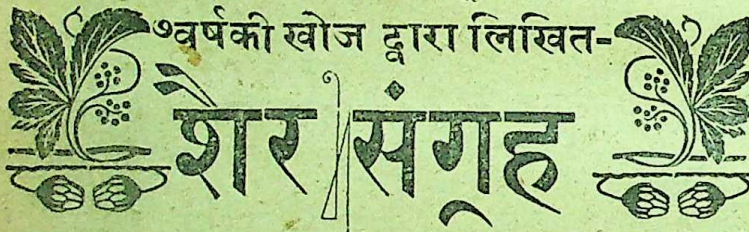 ७वर्षकी खोज द्वारा लिखित-
शैर संग्रह